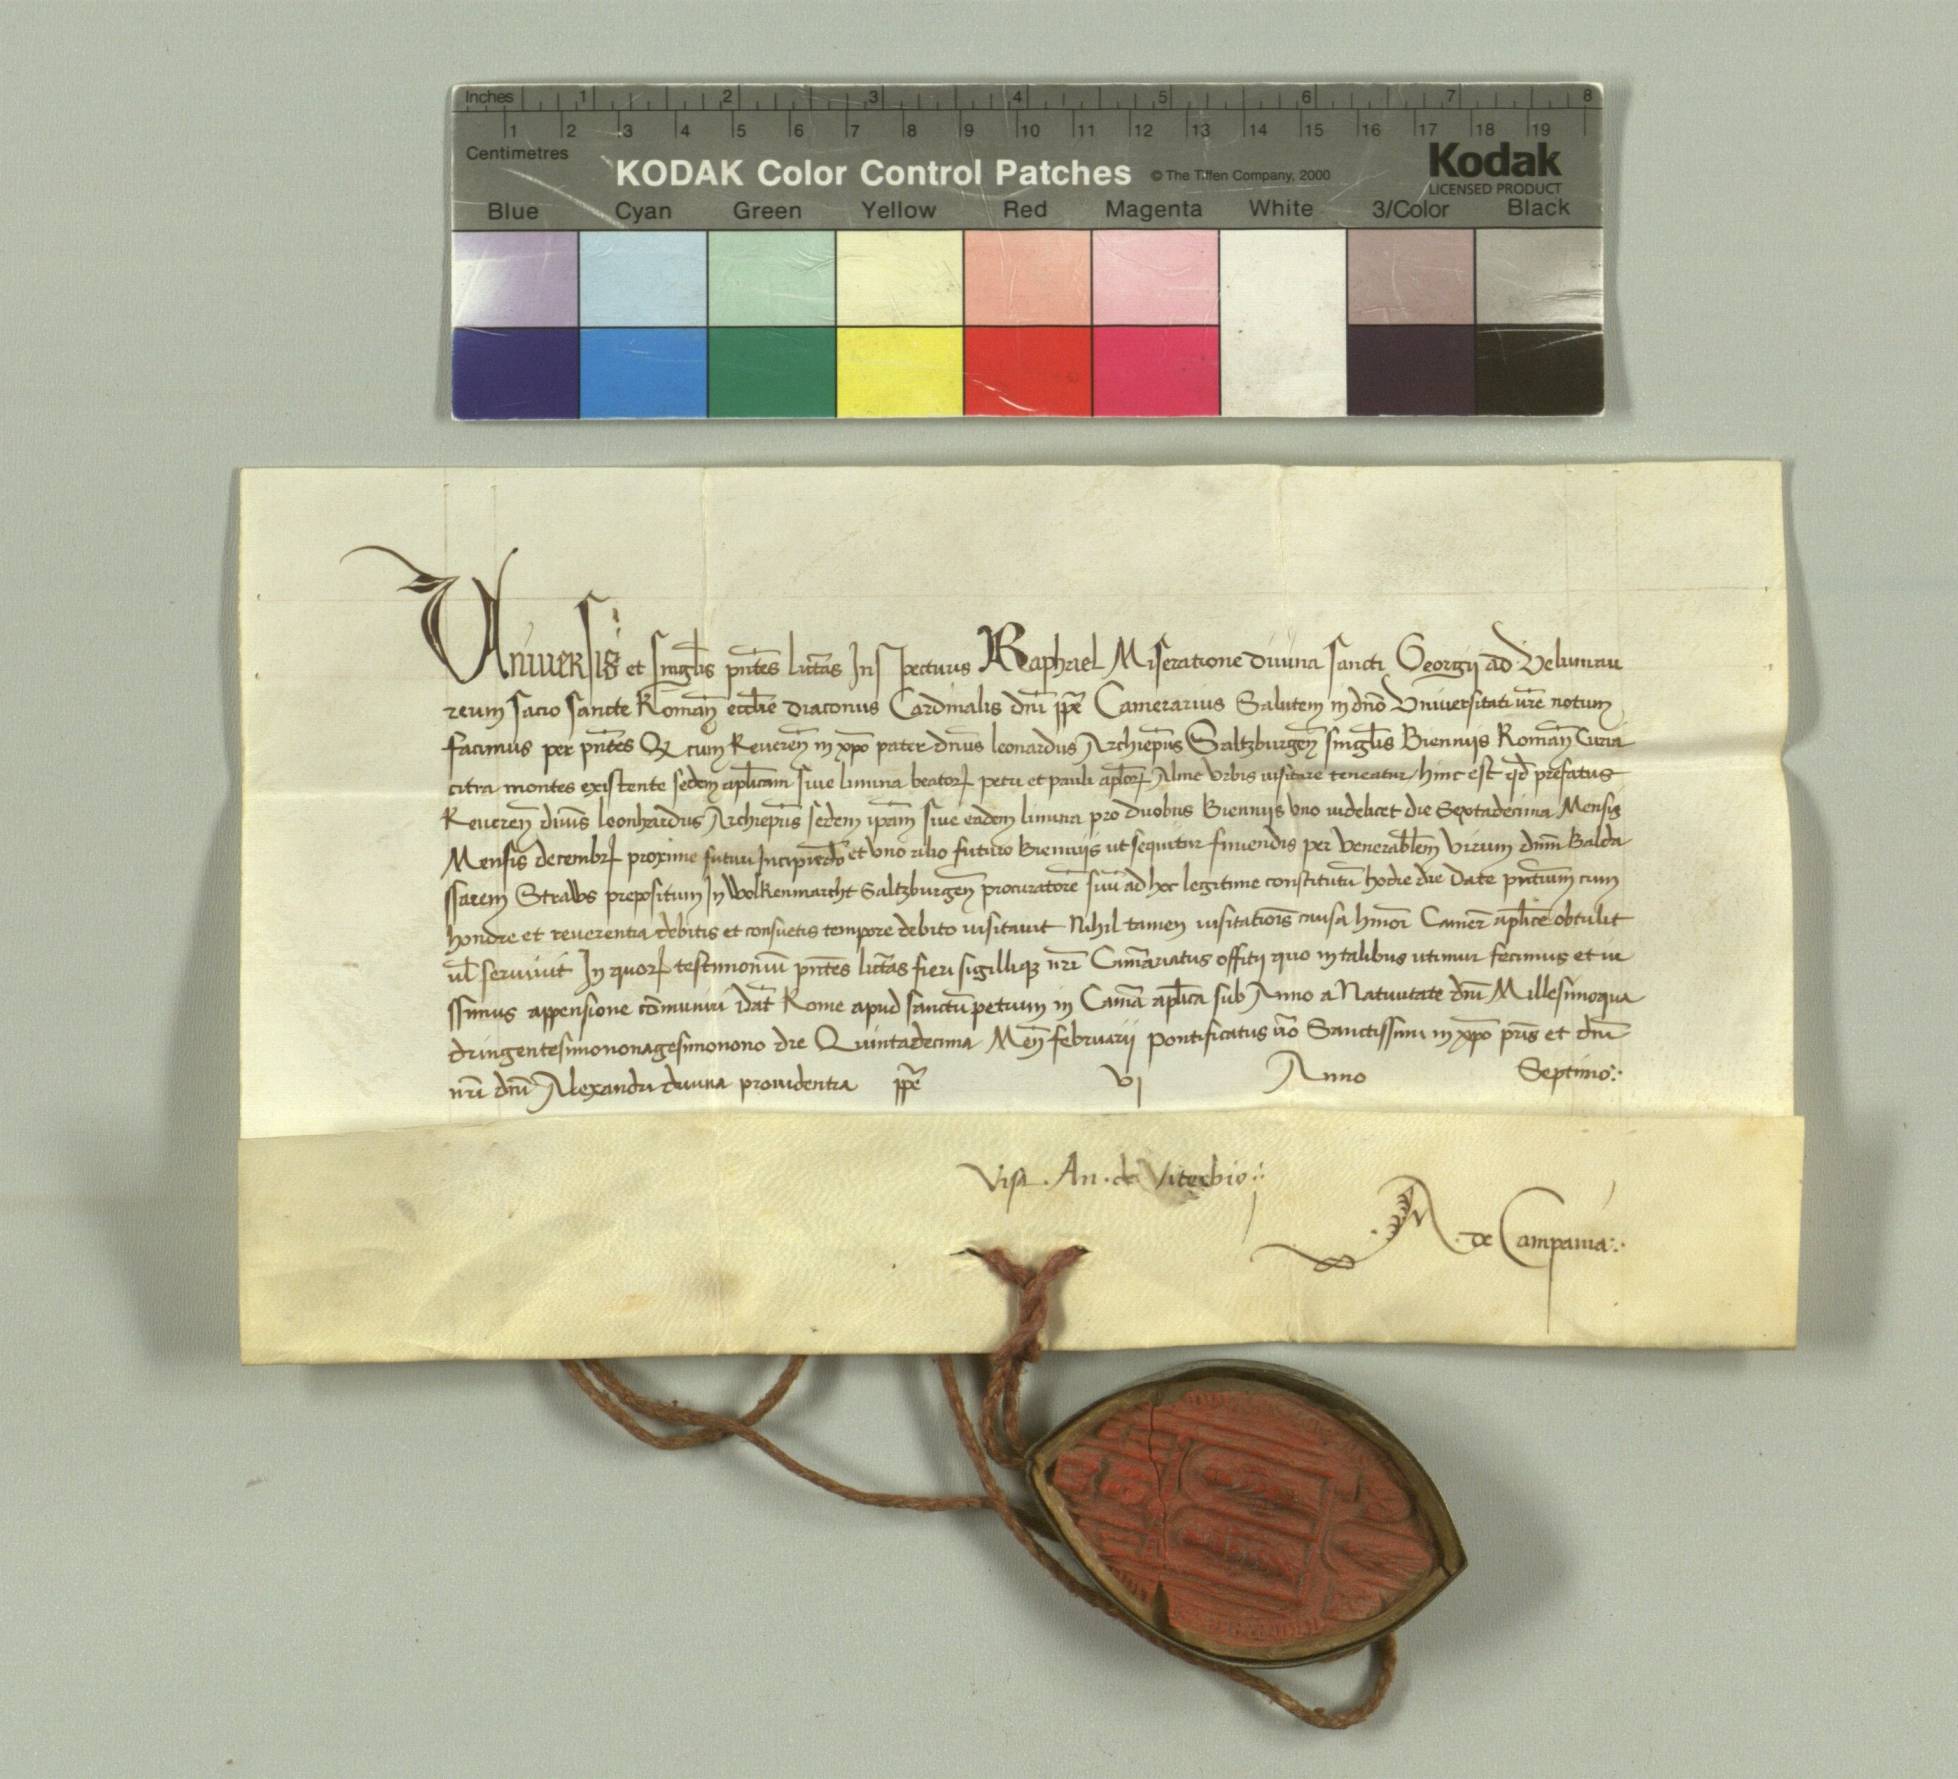 Inches 1 2 3 4 5 6 7 8
1 2 3 4 5 6 7 8 9 10 11 12 13 14 15 16 17 18 19
Centimetres
KODAK Color Control Patches © The Tiffen Company, 2000 Kodak
LICENSED PRODUCT
Blue Cyan Green Yellow Red Magenta White 3/Color Black
Uniuersis et singlis pntes lrãs Inspecturis Raphael Miseratione diuina sancti Georgij ad Velumau
reum sacro sancte Roman ecclie diaconus Cardinalis dni ppe Camerarius Salutem in dno Vniuersitati vre notum
facimus per pntes Qz cum Reueren in xpo pater dnus leonardus Archiepus Saltzburgen singlis Biennijs Roman Curia
citra montes existente sedem aplicam siue limina beatorꝝ petri et pauli aplorꝝ Alme Vrbis uisitare teneatur hinc est qd prefatus
Reueren dnus leonhardus Archiepus sedem ipam siue eadem limina pro duobus Biennijs vno uidelicet die Sextadecima Mensis
Mensis decembrꝝ proxime futuri Incipiendo et vno alio futuro Biennijs ut sequitur finiendis per Venerablem Virum dnm Balda
ssarem Straws prepositum In Wolkenmarcht Saltzburgen procuratore suu ad hoc legitime constitutu hodie die date pntium cum
honore et reuerentia debitis et consuetis tempore debito uisitauit Nihil tamen uisitatiois causa hmoi Camer aplice obtulit
ul seruiuit In quorꝝ testimoniu pntes lras fieri sigillique nri Camariatus offitij quo in talibus utimur fecimus et iu
ssimus appensione comuniri dat Rome apud sanctu petrum in Cama aplica sub Anno a Natiuitate dni Millesimoqua
dringentesimononagesimonono die Quintadecima Men februarij Pontificatus uo Sanctissimi in xpo pris et dni
nri dni Alexandri diuina prouidentia ppe VI Anno Septimo:·
Visa . An . de Viterbio :·
A . de Campania:·